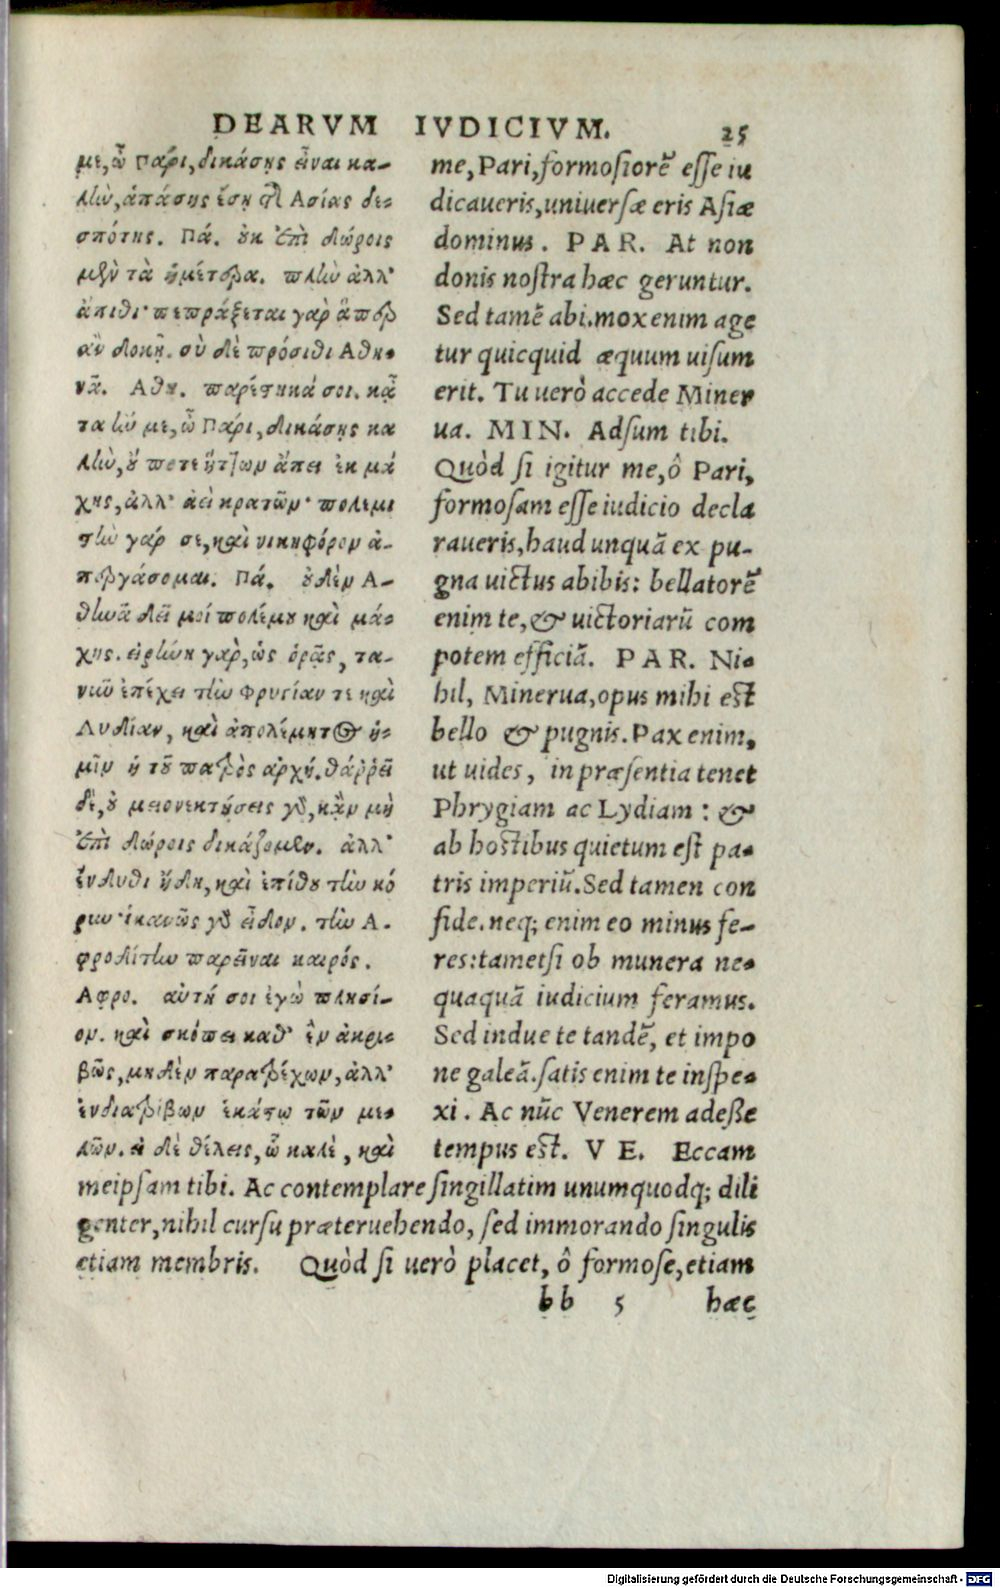 DEARVM IVDICIVM. 25
με, ὦ Πάρι, δικάσῃς εἶναι κα-
λὴν, ἁπάσης ἔσῃ τῆς Ἀσίας δε-
σπότης. Πά. οὐκ ἐπὶ δώροις
μὲν τὰ ἡμέτερα. πλὴν ἀλλ'
ἄπιθι· πεπράξεται γὰρ ἅπερ
ἂν δοκῇ. σὺ δὲ πρόσιθι Ἀθη-
νᾶ. Ἀθη. παρέστηκά σοι. κᾆ
τα ἤν με, ὦ Πάρι, δικάσῃς κα
λὴν, οὔ ποτε ἥττων ἄπει ἐκ μά
χης, ἀλλ' ἀεὶ κρατῶν· πολεμι
στὴν γάρ σε, καὶ νικηφόρον ἀ-
περγάσομαι. Πά. οὐδὲν Ἀ-
θηνᾶ δεῖ μοί πολέμου καὶ μά-
χης. εἰρήνη γὰρ, ὡς ὁρᾷς, τα-
νῦν ἐπέχει τὴν Φρυγίαν τε καὶ
Λυδίαν, καὶ ἀπολέμητος ἡ-
μῖν ἡ τοῦ πατρὸς ἀρχή. θάῤῥει
δέ, οὐ μειονεκτήσεις γὰρ, κἂν μὴ
ἐπὶ δώροις δικάζομεν. ἀλλ'
ἔνδυθι ἤδη, καὶ ἐπίθου τὴν κό
ρυν· ἱκανῶς γὰρ εἶδον. τὴν Ἀ-
φροδίτην παρεῖναι καιρός.
Ἀφρο. αὐτή σοι ἐγὼ πλησί-
ον. καὶ σκόπει καθ' ἓν ἀκρι-
βῶς, μηδὲν παρατρέχων, ἀλλ'
ἐνδιατρίβων ἑκάστῳ τῶν με-
λῶν. εἰ δὲ θέλεις, ὦ καλὲ, καὶ
me, Pari, formosiorē esse iu
dicaueris, uniuersæ eris Asiæ
dominus. PAR. At non
donis nostra hæc geruntur.
Sed tamē abi. mox enim age
tur quicquid æquum uisum
erit. Tu uerò accede Miner
ua. MIN. Adsum tibi.
Quòd si igitur me, ô Pari,
formosam esse iudicio decla
raueris, haud unquā ex pu-
gna uictus abibis: bellatorē
enim te, & uictoriarū com
potem efficiā. PAR. Ni-
hil, Minerua, opus mihi est
bello & pugnis. Pax enim,
ut uides, in præsentia tenet
Phrygiam ac Lydiam: &
ab hostibus quietum est pa-
tris imperiū. Sed tamen con
fide. neq; enim eo minus fe-
res: tametsi ob munera ne-
quaquā iudicium feramus.
Sed indue te tandē, et impo
ne galeā. satis enim te inspe-
xi. Ac nūc Venerem adesse
tempus est. VE. Eccam
meipsam tibi. Ac contemplare singillatim unumquodq; dili
genter, nihil cursu præteruehendo, sed immorando singulis
etiam membris. Quòd si uerò placet, ô formose, etiam
bb 5 hæc
Digitalisierung gefördert durch die Deutsche Forschungsgemeinschaft - DFG